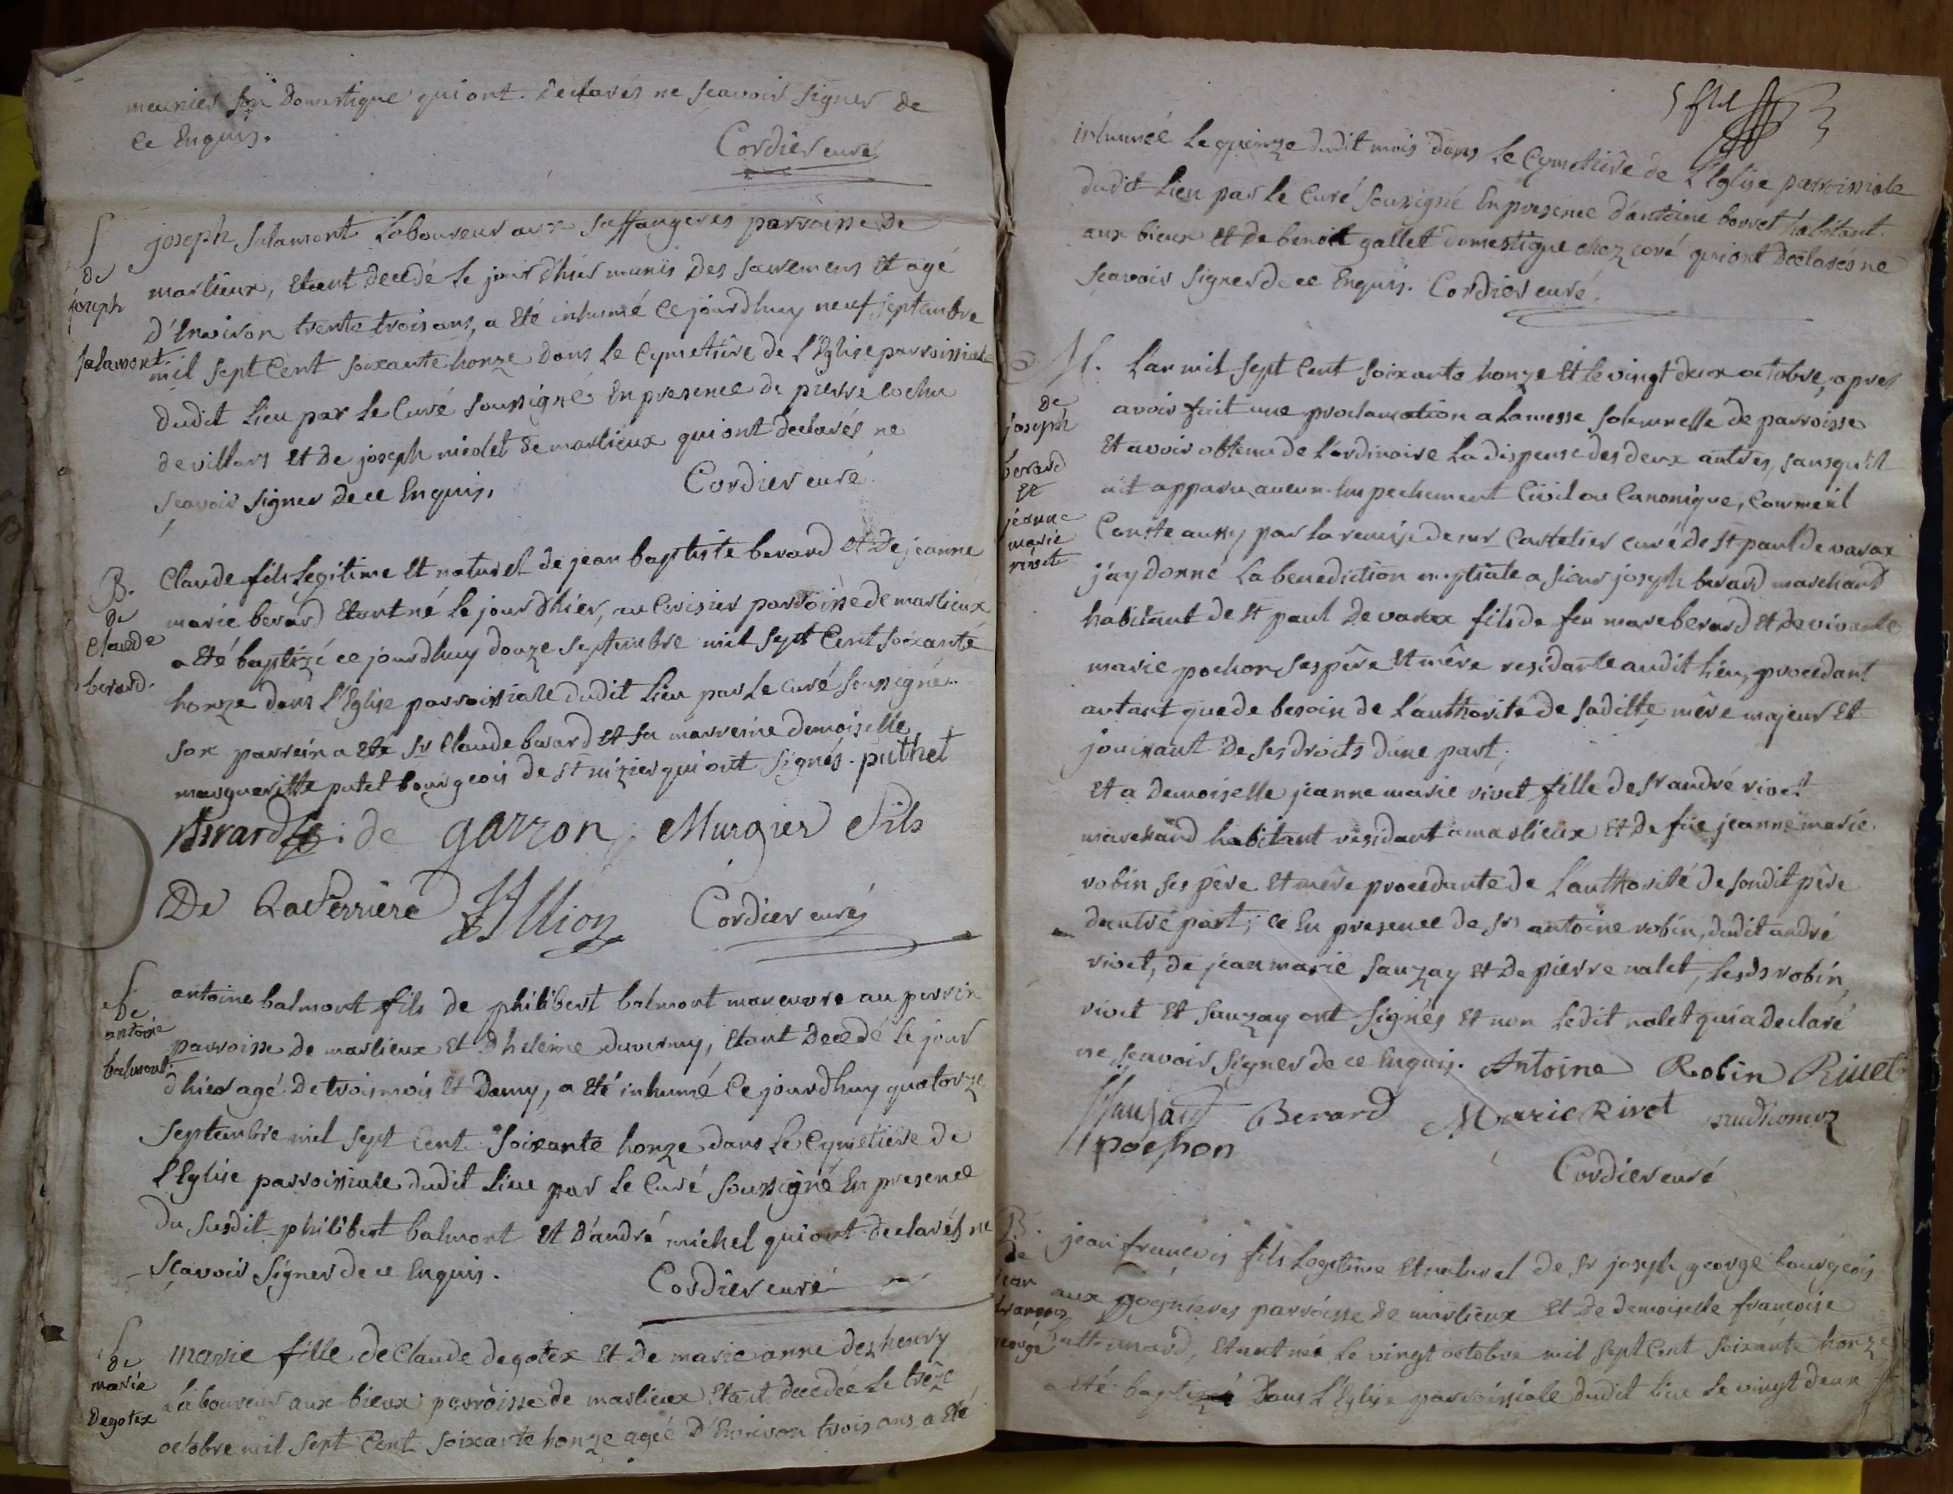 meunier son Domestique qui ont Declarés ne scavoir signer de
ce Enquis.
Cordier curé
S
de
joseph
salamont
joseph salamont Laboureur aux saffangeres parroisse de
marlieux, etant decedé le jour d'hier munis des sacremens et agé
d'Environ trente trois ans, a eté inhumé ce jourdhuy neuf septembre
mil sept cent soixante honze dans le cymetiere de l'Eglise parroissiale
dudit lieu par le curé soussigné en presence de pierre cochu
de villars et de joseph niedet de marlieux qui ont declarés ne
scavoir signer de ce Enquis,
Cordier curé
B.
de
claude
berard.
Claude fils Legitime et naturel de jean baptiste berard et de jeanne
marie berard etant né le jour d'hier, au cerisier parroisse de marlieux
a eté baptizé ce jourdhuy douze septembre mil sept cent soixante
honze dans l'Eglise parroissiale dudit lieu par le curé soussigné
son parrein a eté sr Claude berard et sa marreine demoiselle
margueritte putet bourgeois de st nizier qui ont signés. puthet
Berard de garron Murgier fils
De Laverriere Cordier curé
S
de
antoine
balmont.
antoine balmont fils de philibert balmont maneuvre au perrin
parroisse de marlieux et d'heleine duvernay, etant decedé le jour
d'hier agé de trois mois et demy, a eté inhumé ce jourdhuy quatorze
septembre mil sept cent soixante honze dans le cymetiere de
l'Eglise parroissiale dudit lieu par le curé soussigné en presence
du susdit philibert balmont et d'andré michel qui ont declarés ne
scavoir signer de ce Enquis.
Cordier curé
S
de
marie
degotex
marie fille de Claude degotex et de marie anne deshenry
Laboureur aux bieux parroisse de marlieux etant decedée le treze
octobre mil sept cent soixante honze agée d'Environ trois ans a eté
inhumée le quinze dudit mois dans le cymetiere de l'Eglise parroissiale
dudit lieu par le curé soussigné en presence d'antoine borret habitant
aux bieux et de benoit gallet domestique chez coré qui ont declarés ne
scavoir signer de ce Enquis. Cordier curé.
M.
de
joseph
berard
et
jeanne
marie
rivet
L'an mil sept cent soixante honze et le vingt deux octobre, apres
avoir fait une proclamation a la messe solemnelle de parroisse
et avoir obtenu de l'ordinaire la dispense des deux autres, sans qu'il
ait apparu aucun Empechement civil ou canonique, comme il
conste aussy par la remise de mr Cartelier curé de st paul de varax
j'ay donné la benediction nuptiale a sieur joseph berard marchand
habitant de st paul de varax fils de feu marc berard et de vivante
marie pochon ses pêre et mêre residante audit lieu, procedant
autant que de besoin de l'authorité de sadite mêre majeur et
jouissant de ses droits d'une part;
et a demoiselle jeanne marie rivet fille de sr andré rivet
marchand habitant residant a marlieux et de füe jeanne marie
robin ses pêre et mêre procedante de l'authorité de sondit pêre
d'autre part; ce en presence de sr antoine robin, dudit andré
rivet, de jean marie sauzay et de pierre nalet, lesds robin,
rivet et sauzay ont signés et non ledit nalet qui a declaré
ne scavoir signer de ce Enquis. Antoine Robin Rivet
Sauzay Berard Marie Rivet prudhomez
pochon
Cordier curé
B.
de
jean
françois
george
jean françois fils Legitime et naturel de sr joseph george bourgeois
aux gognieres parroisse de marlieux et de demoiselle françoise
etant né le vingt octobre mil sept cent soixante honze
a eté baptizé dans l'Eglise parroissiale dudit lieu le vingt deux